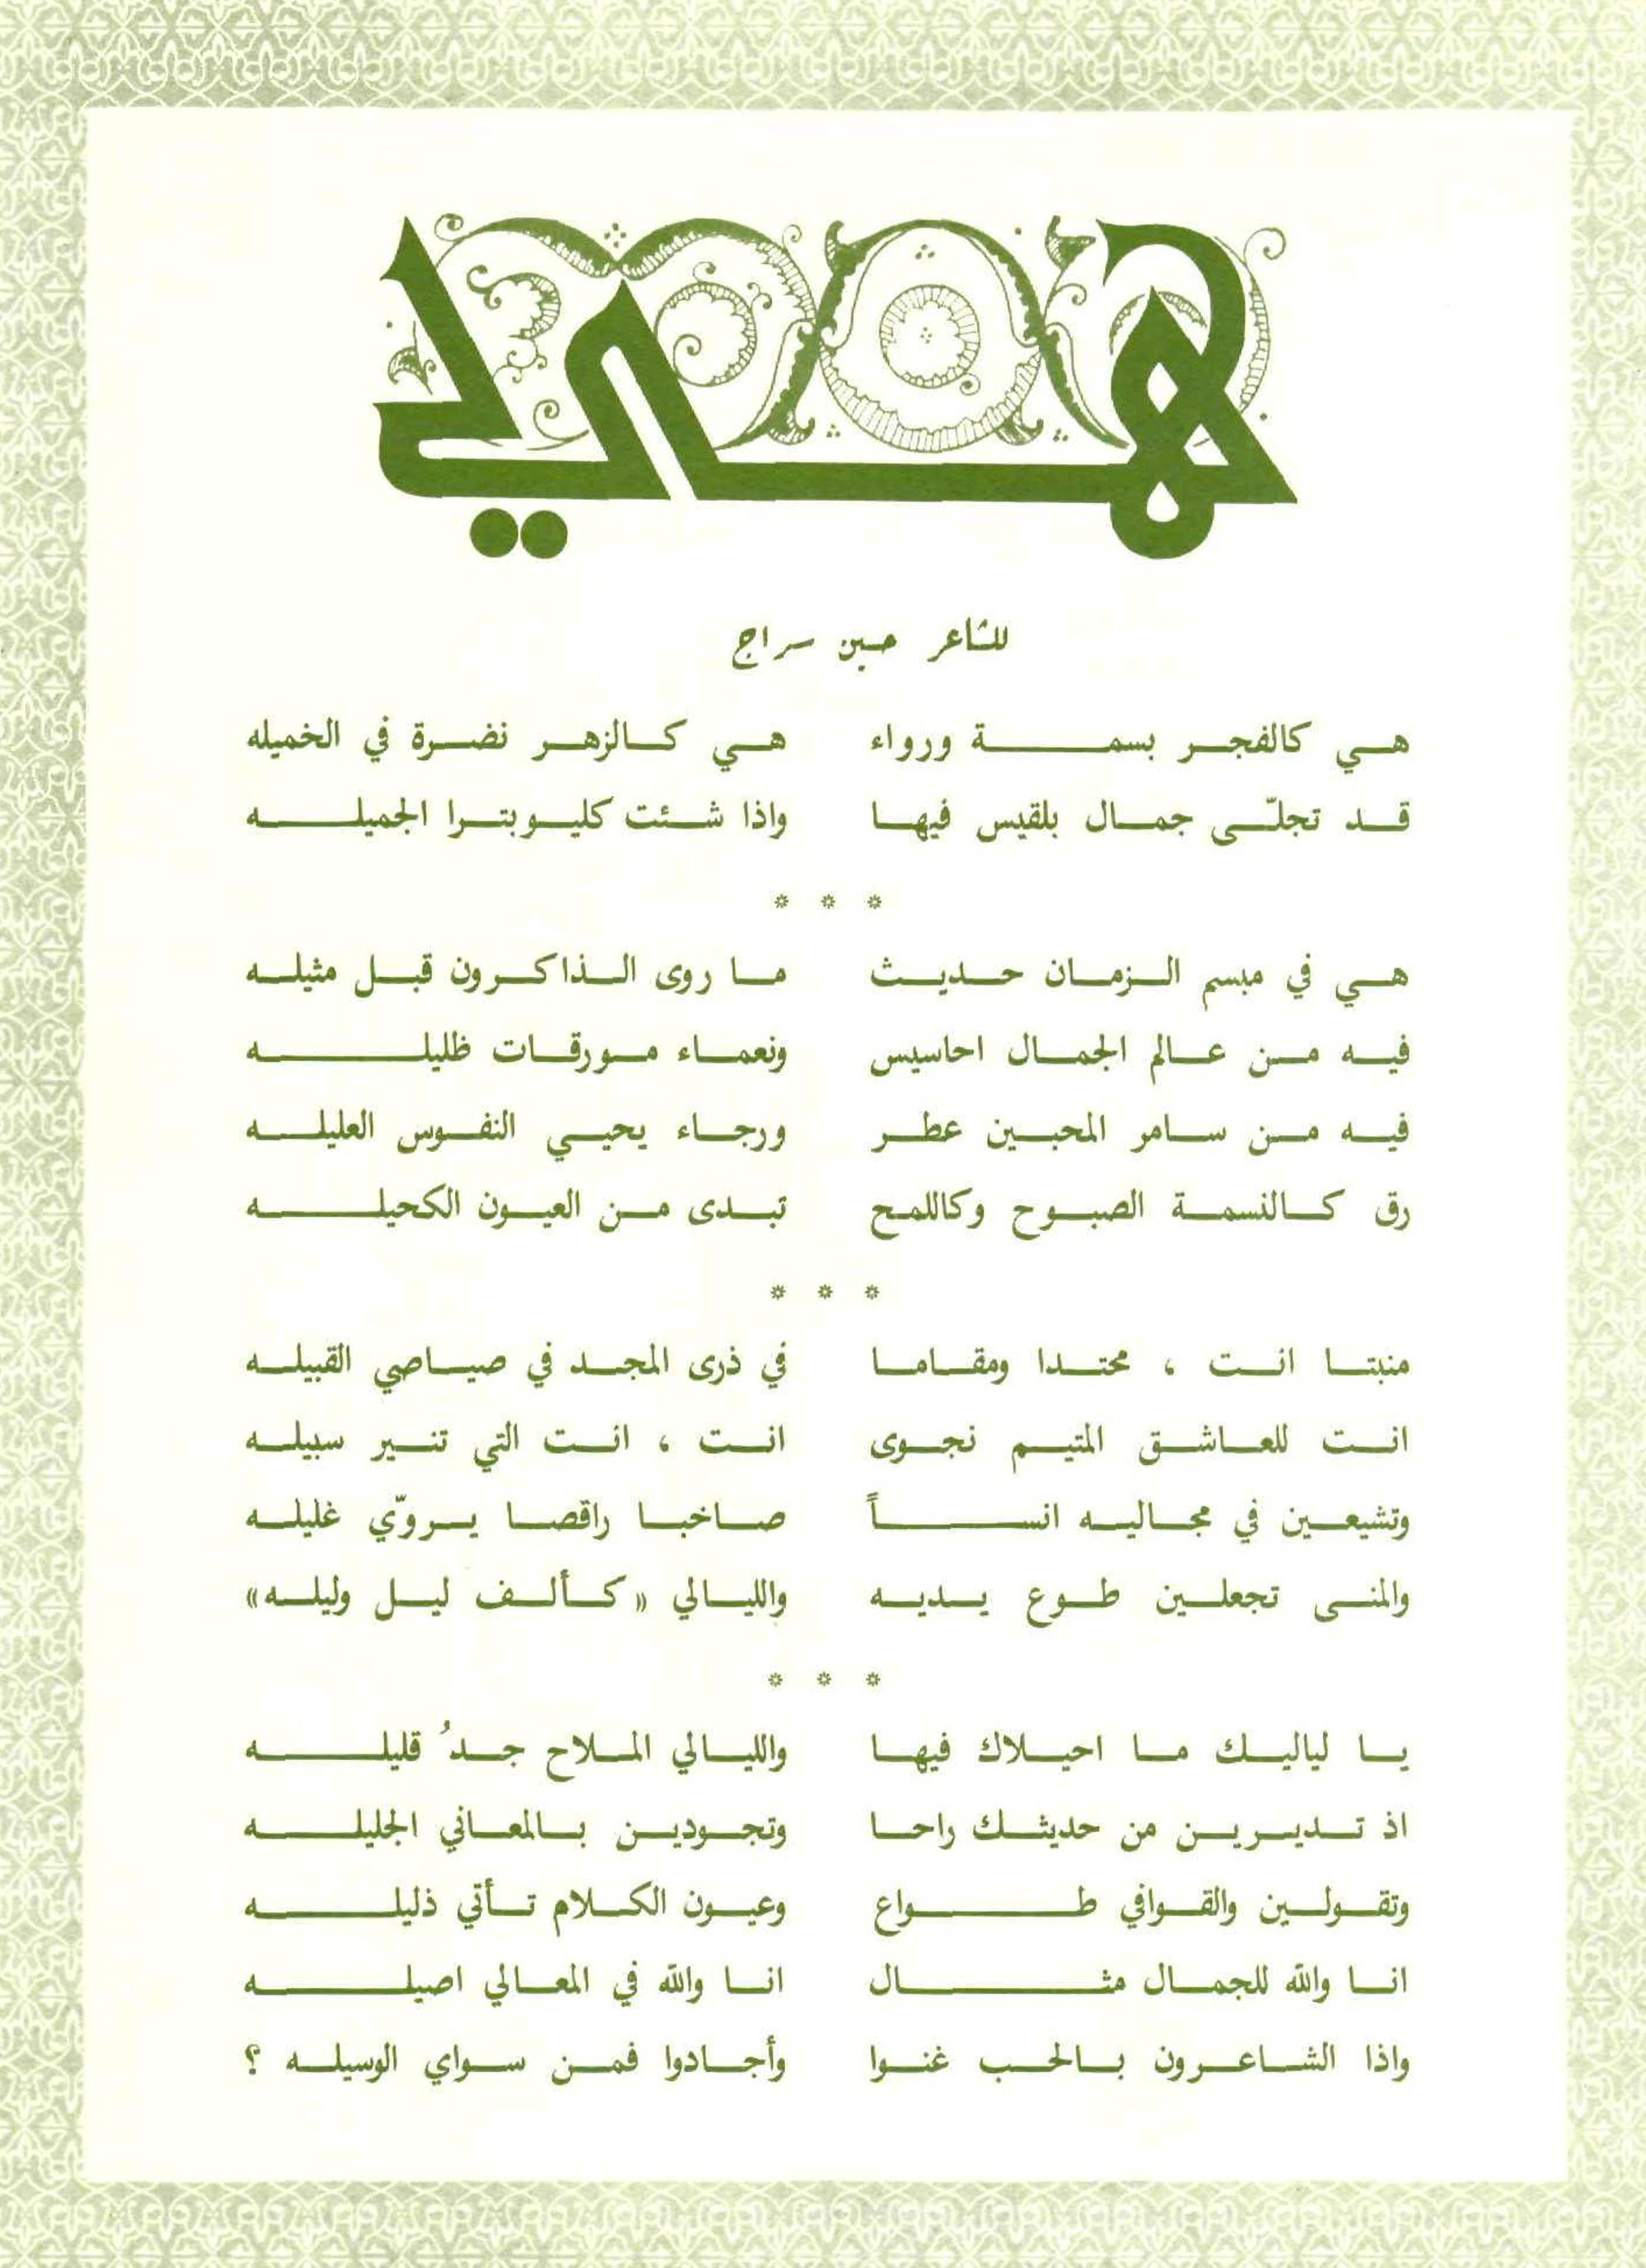 هي
للشاعر حسين سراج
هي كالفجر بسمة ورواء هي كالزهر نضرة في الخميله
قد تجلّى جمال بلقيس فيها واذا شئت كليوبترا الجميله
* * *
هي في مبسم الزمان حديث ما روى الذاكرون قبل مثيله
فيه من عالم الجمال احاسيس ونعماء مورقات ظليله
فيه من سامر المحبين عطر ورجاء يحيي النفوس العليله
رق كالنسمة الصبوح وكاللمح تبدى من العيون الكحيله
* * *
منبتا انت ، محتدا ومقاما في ذرى المجد في صياصي القبيله
انت للعاشق المتيم نجوى انت ، انت التي تنير سبيله
وتشيعين في مجاليه انسأً صاخبا راقصا يروّي غليله
والمنى تجعلين طوع يديه والليالي « كألف ليل وليله»
* * *
يا لياليك ما احيلاك فيها والليالي الملاح جدُ قليله
اذ تديرين من حديثك راحا وتجودين بالمعاني الجليله
وتقولين والقوافي طواع وعيون الكلام تأتي ذليله
انا والله للجمال مثال انا والله في المعالي اصيله
واذا الشاعرون بالحب غنوا وأجادوا فمن سواي الوسيله ؟